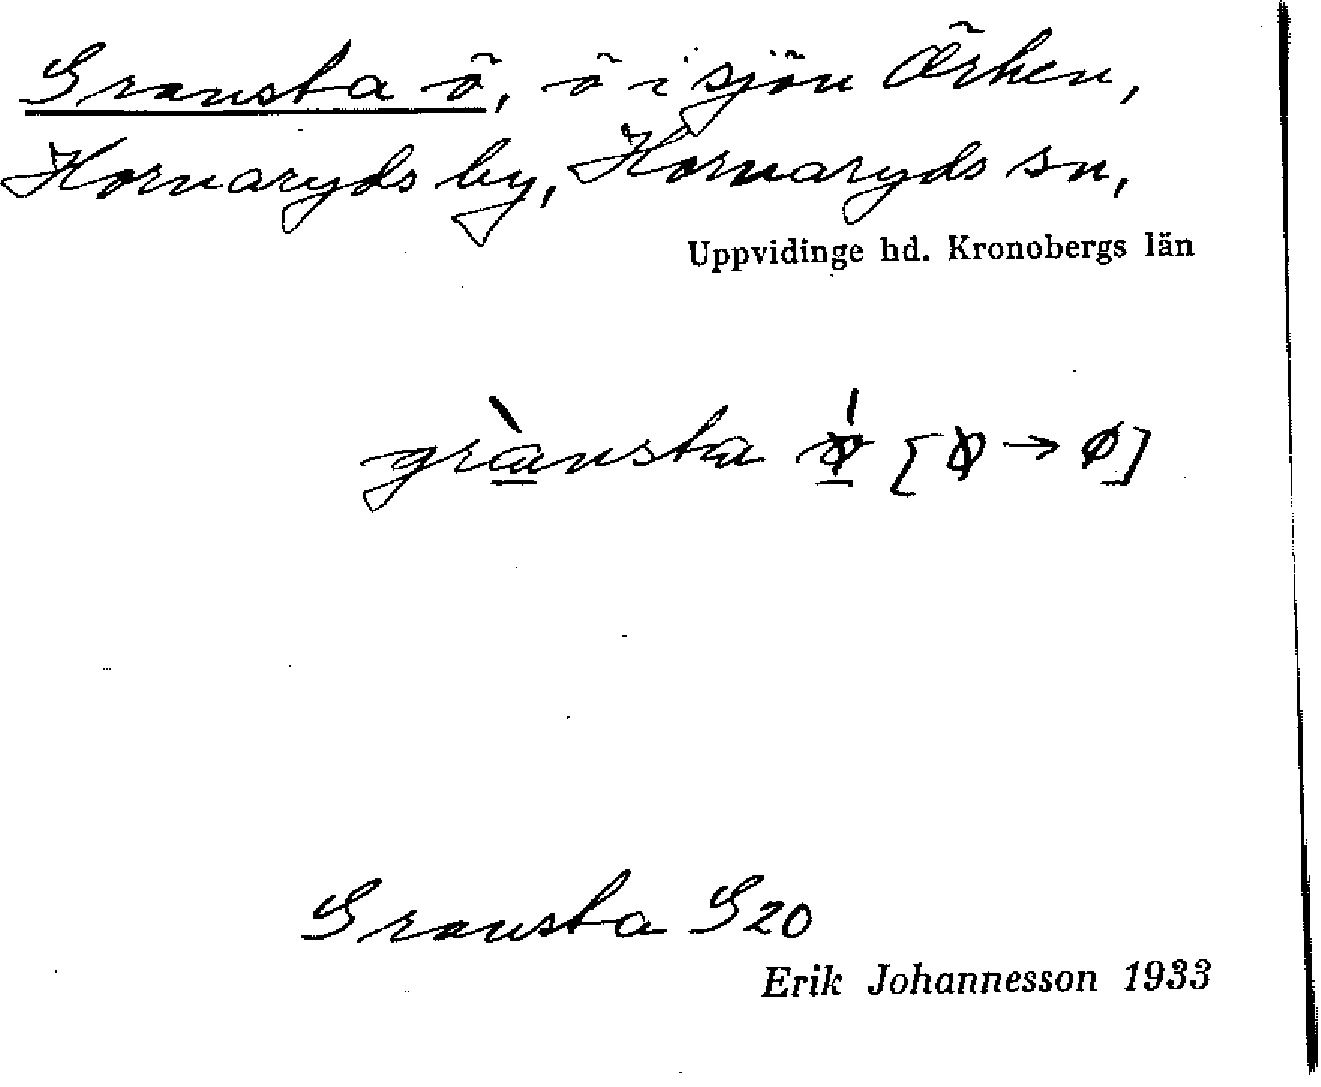 Gransta ö, ö i sjön Örken,
Hornaryds by, Hornaryds sn,
Uppvidinge hd. Kronobergs län
grànsta
Gransta G20
Erik Johannesson 1933